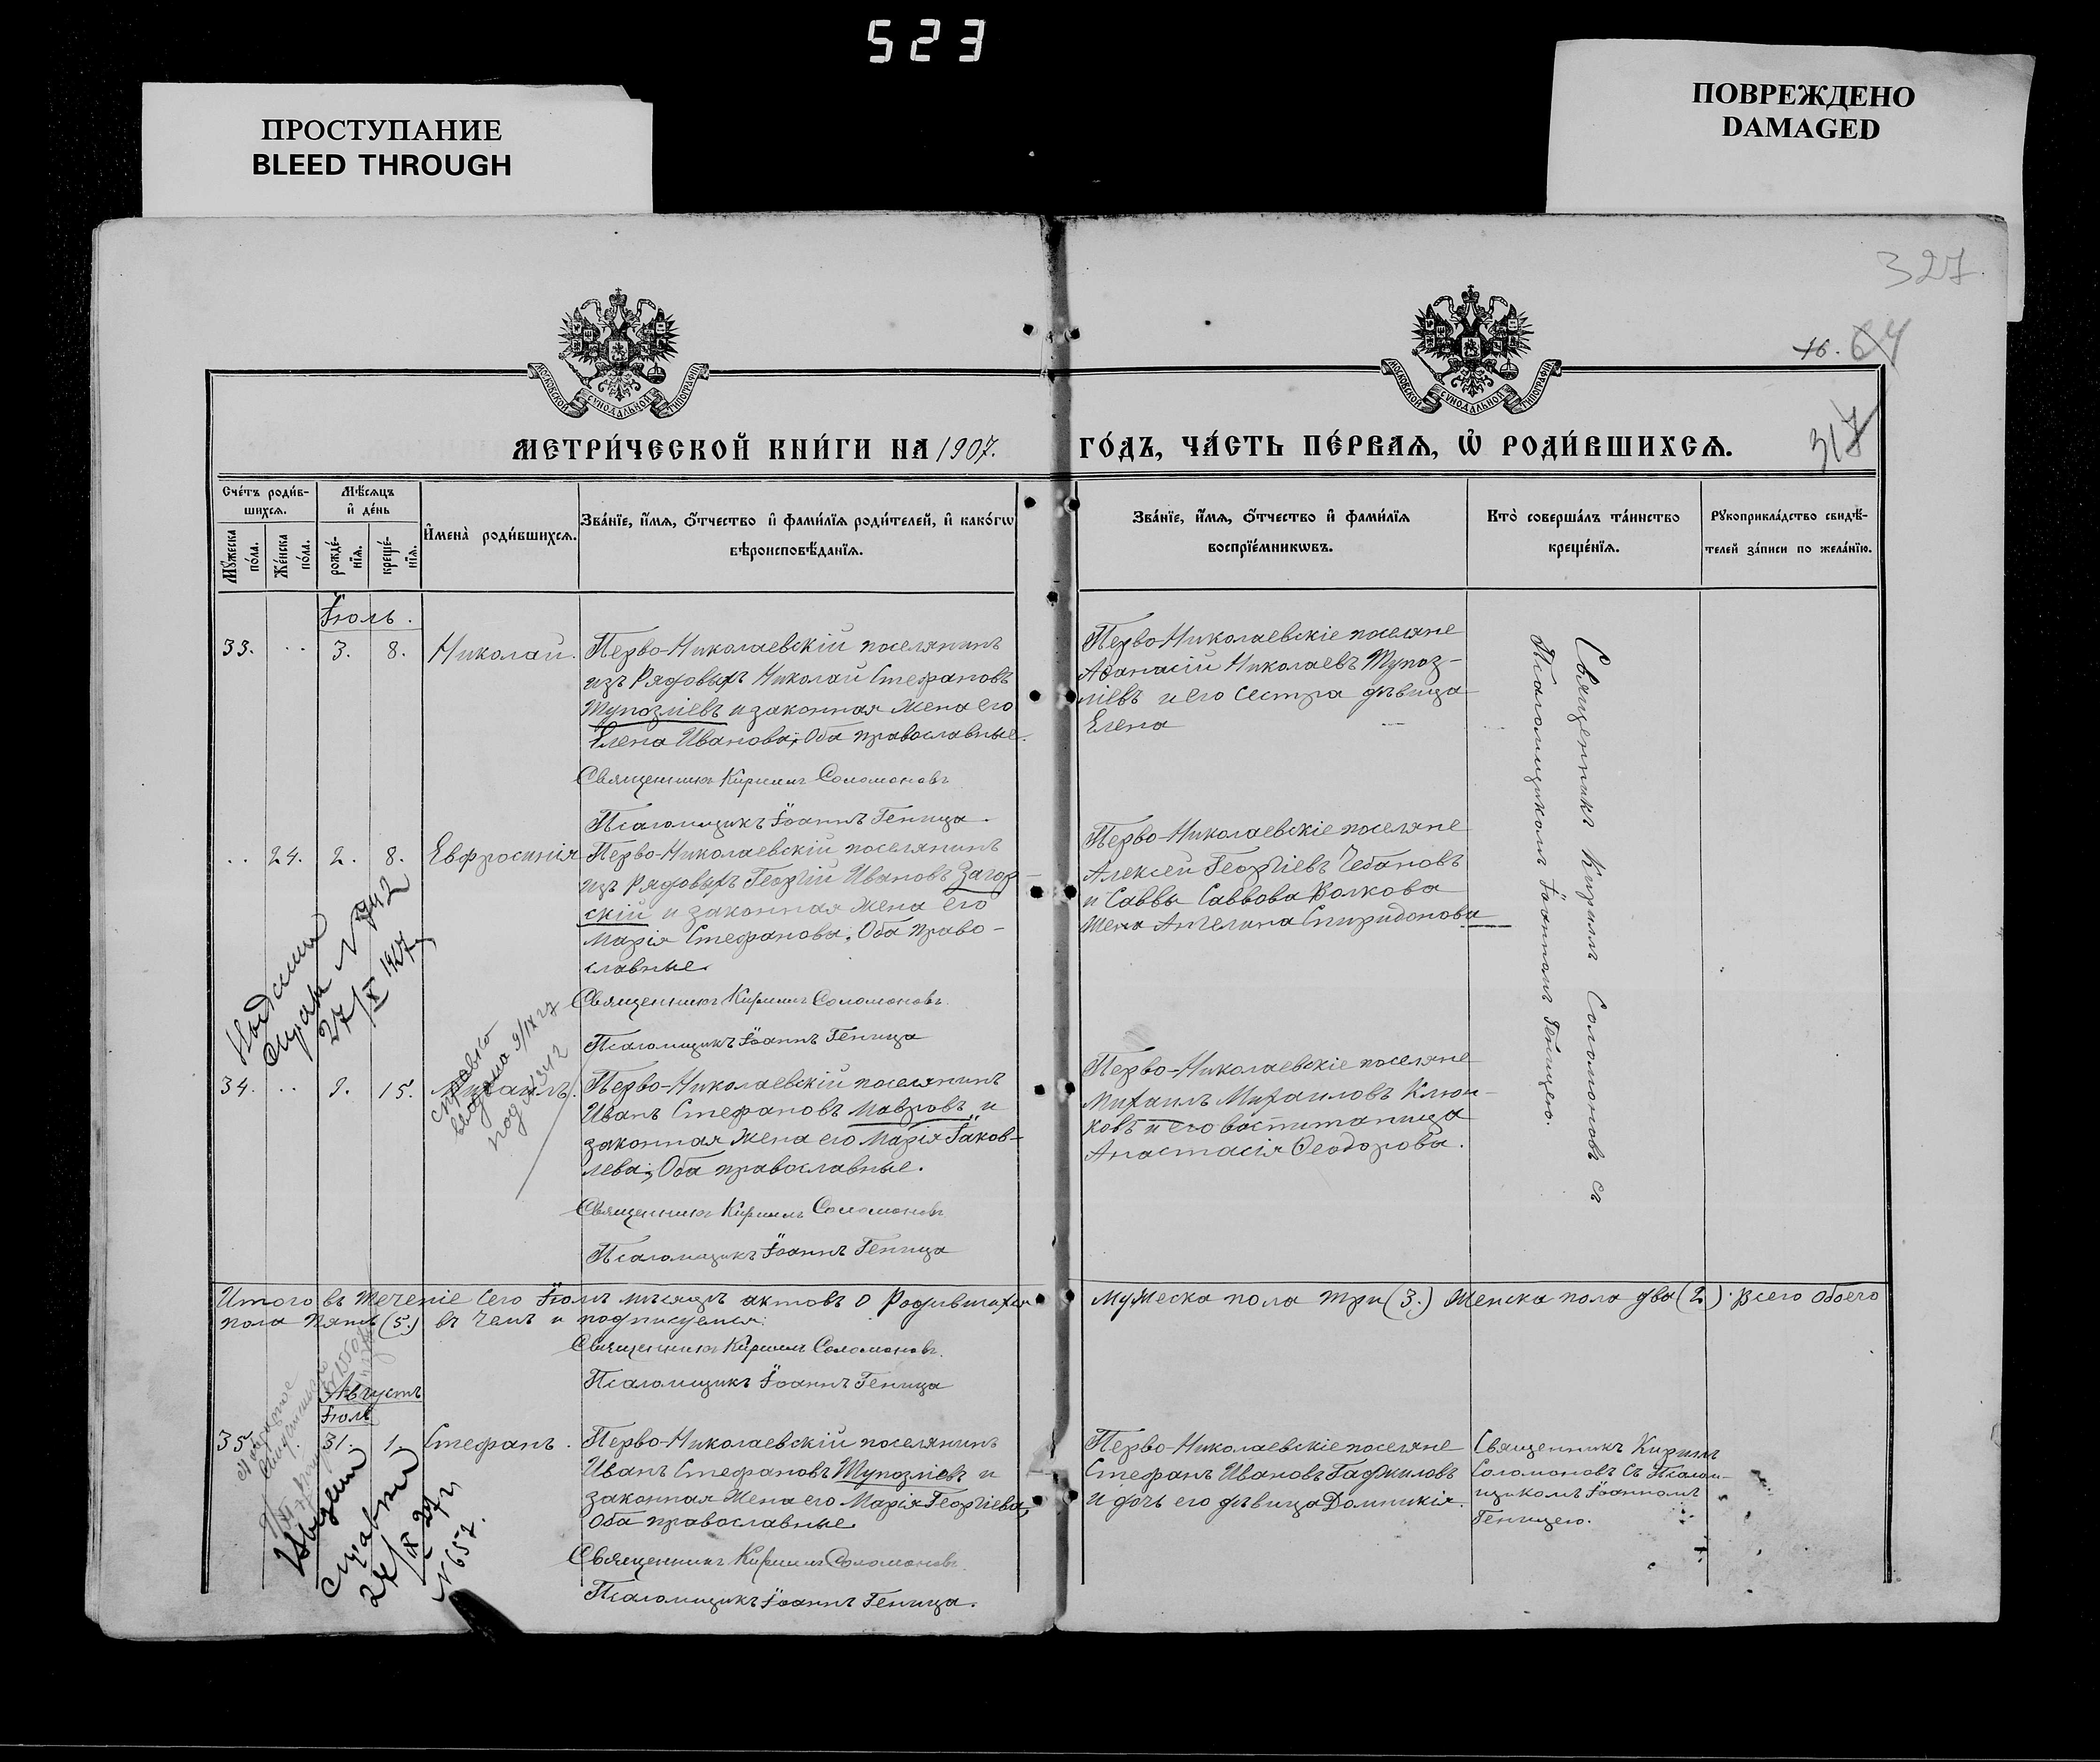 523
ПРОСТУПАНИЕ
BLEED THROUGH
ПОВРЕЖДЕНО
DAMAGED
327
16. 64
317
МОСКОВСКОЙ СѴНОДАЛЬНОЙ ТИПОГРАФІИ
МОСКОВСКОЙ СѴНОДАЛЬНОЙ ТИПОГРАФІИ
МЕТРИ́ЧЕСКОЙ КНИ́ГИ НА 1907.
ГО́ДЪ, ЧА́СТЬ ПЕ́РВАѦ, Ѡ҆ РОДИ́ВШИХСѦ.
Сче́тъ роди́в-
шихсѧ.
Мꙋ́жеска по́ла.
Же́нска по́ла.
Мѣ́сѧцъ
и҆ де́нь
рожде́-
нїѧ.
креще́-
нїѧ.
И҆мена̀ роди́вшихсѧ.
Зва́нїе, и҆́мѧ, ѻ҆́тчество и҆ фами́лїѧ роди́телей, и҆ како́гѡ
вѣроисповѣ́данїѧ.
Зва́нїе, и҆́мѧ, ѻ҆́тчество и҆ фами́лїѧ
воспрїе́мникѡвъ.
Кто̀ соверша́лъ та́инство
креще́нїѧ.
Рꙋкоприкла́дство свидѣ́-
телей за́писи по жела́нїю.
Іюль.
33. .. 3. 8. Николай. Перво-Николаевскій поселянинъ
изъ Рядовыхъ Николай Стефановъ
Тупозліевъ и законная жена его
Елена Иванова, Оба православные.
Священникъ Кириллъ Соломоновъ
Псаломщикъ Іоаннъ Геница.
Перво-Николаевскіе поселяне
Аѳанасій Николаевъ Тупоз-
ліевъ и его сестра дѣвица
Елена
Священникъ Кириллъ Соломоновъ съ
Псаломщикомъ Іоанномъ Геницею.
.. 24. 2. 8. Евфросинія Перво-Николаевскій поселянинъ
изъ Рядовыхъ Георгій Ивановъ Загор-
скій и законная жена его
Марія Стефанова, Оба право-
славные.
Священникъ Кириллъ Соломоновъ.
Псаломщикъ Іоаннъ Геница
Перво-Николаевскіе поселяне
Алексей Георгіевъ Чебановъ
и Саввы Саввова Волкова
жена Ангелина Спиридонова
27/X 1927
справка
выдана 9/IX 27
34. .. 9. 15. Михаилъ. Перво-Николаевскій поселянинъ
Иванъ Стефановъ Мавровъ и
законная жена его Марія Іаков-
лева, Оба православные.
Священникъ Кириллъ Соломоновъ
Псаломщикъ Іоаннъ Геница
Перво-Николаевскіе поселяне
Михаилъ Михаиловъ Ключ-
ковъ и его воспитаница
Анастасія Ѳеодорова.
Итого въ теченіе сего Іюль мѣсяцъ актовъ о Родившихся Мужеска пола три (3.) Женска пола два (2.) Всего обоего
пола пять (5.) въ чемъ и подписуемся:
Священникъ Кириллъ Соломоновъ.
Псаломщикъ Іоаннъ Геница
Августъ
Іюль
35. 31. 1. Стефанъ. Перво-Николаевскій поселянинъ
Иванъ Стефановъ Тупозліевъ и
законная жена его Марія Георгіева,
Оба православные
Священникъ Кириллъ Соломоновъ
Псаломщикъ Іоаннъ Геница.
Перво-Николаевскіе поселяне
Стефанъ Ивановъ Гаджиловъ
и дочь его дѣвица Домникія.
Священникъ Кириллъ
Соломоновъ съ Псалом-
щикомъ Іоанномъ
Геницею.
N 657.